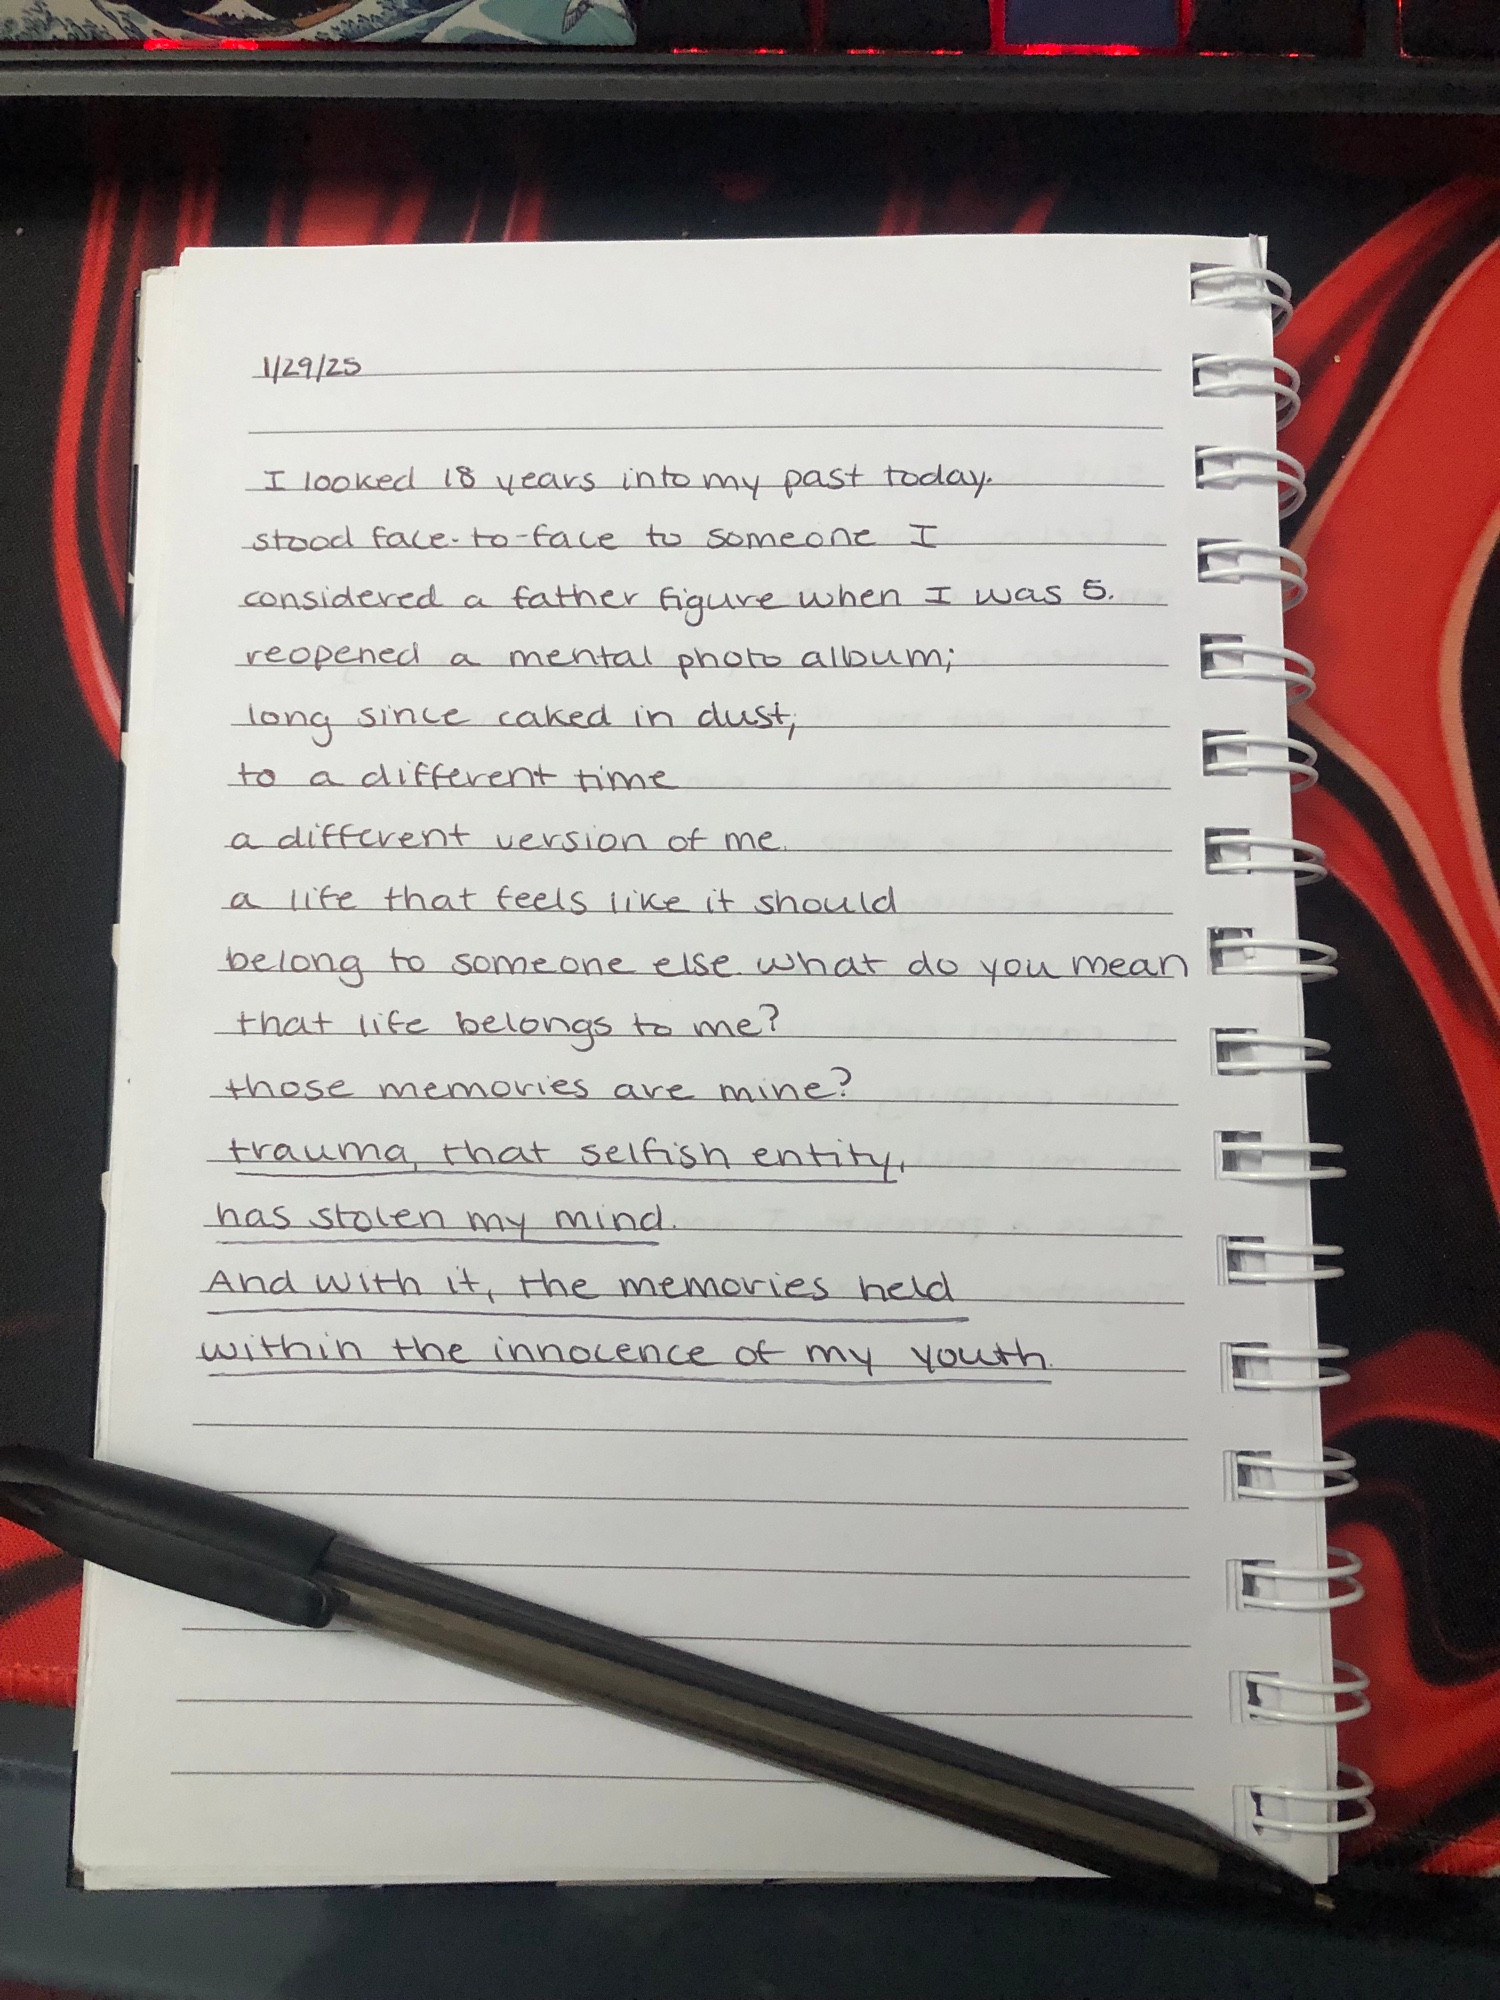 1/29/25
I looked 18 years into my past today.
stood face-to-face to someone I
considered a father figure when I was 5.
reopened a mental photo album;
long since caked in dust;
to a different time
a different version of me.
a life that feels like it should
belong to someone else. what do you mean
that life belongs to me?
those memories are mine?
trauma, that selfish entity,
has stolen my mind.
And with it, the memories held
within the innocence of my youth.